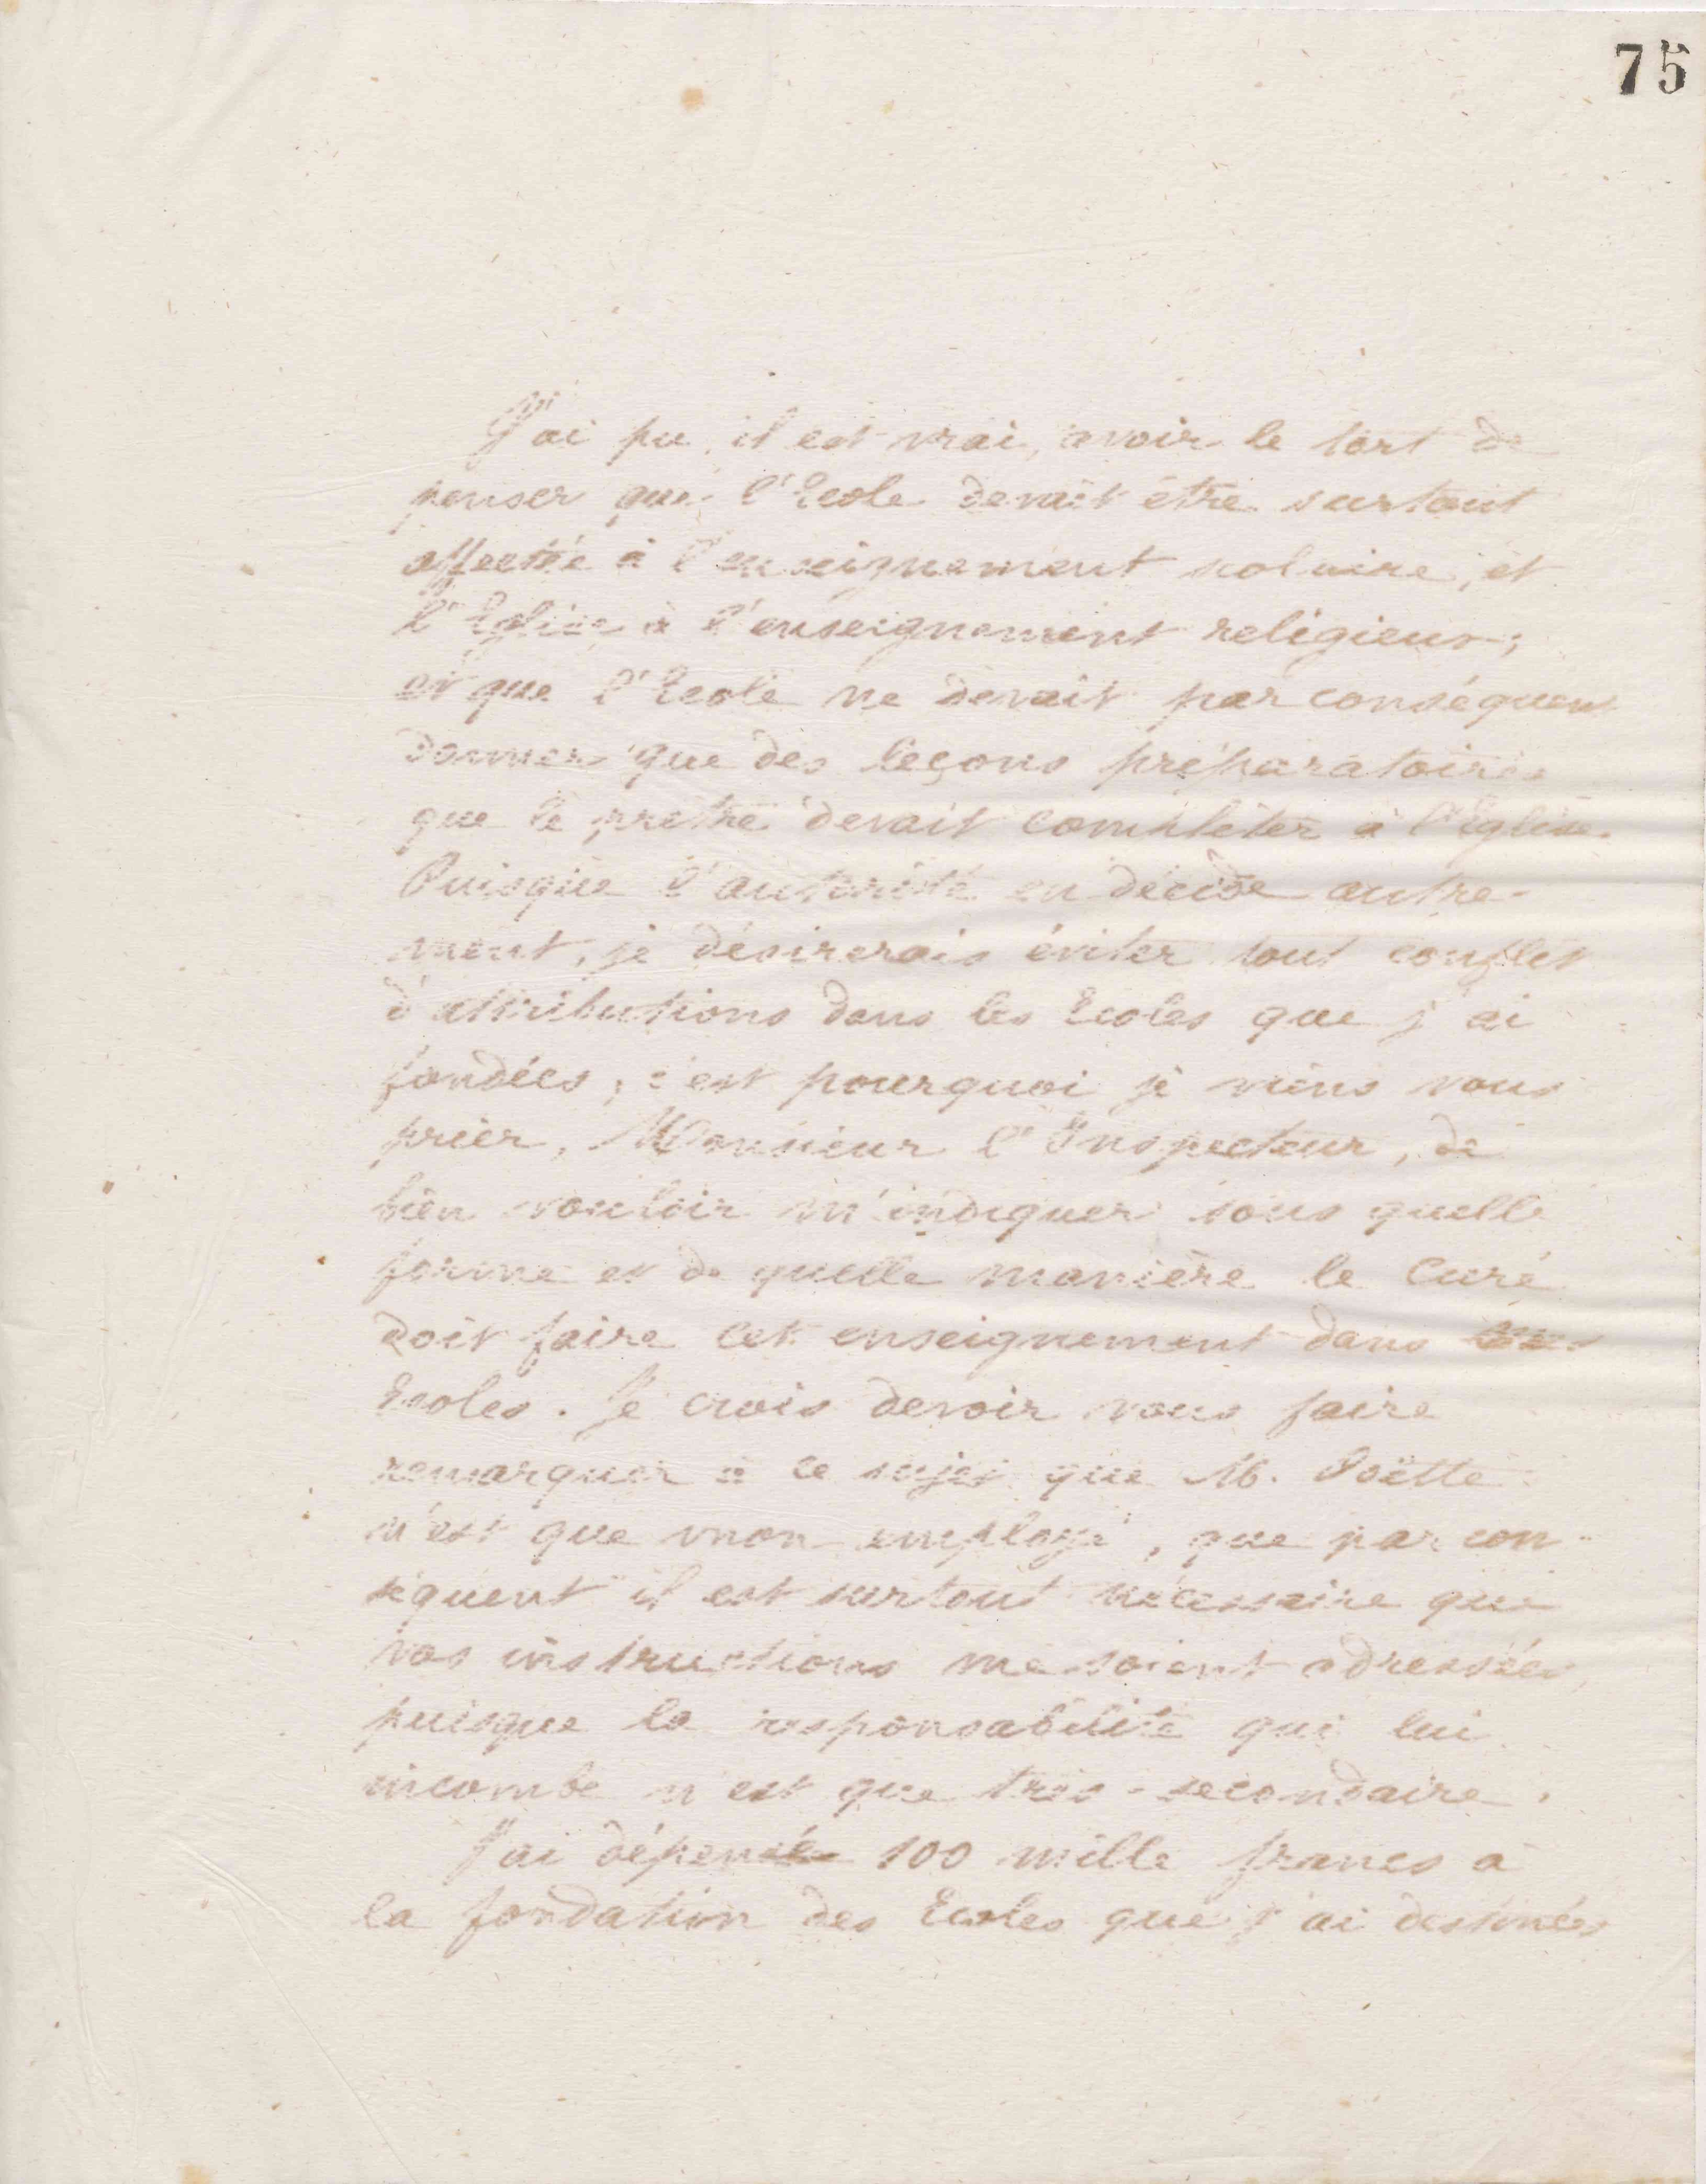 75
J'ai pu, il est vrai, avoir le tort de
penser que l'Ecole devait être surtout
affectée à l'enseignement scolaire, et
l'Eglise à l'enseignement religieux;
et que l'Ecole ne devait par conséquent
donner que des leçons préparatoires
que le prêtre devait compléter à l'Eglise.
Puisque l'autorité en décide autre-
ment, je désirerais éviter tout conflit
d'attributions dans les Ecoles que j'ai
fondées; c'est pourquoi je viens vous
prier, Monsieur l'Inspecteur, de
bien vouloir m'indiquer sous quelle
forme et de quelle manière le Curé
doit faire cet enseignement dans
Ecoles. Je crois devoir vous faire
remarquer à ce sujet que M.
n'est que mon employé, que par con-
séquent il est surtout nécessaire que
vos instructions me soient adressées,
puisque la responsabilité qui lui
incombe n'est que très-secondaire.
J'ai dépensé 100 mille francs à
la fondation des Ecoles que j'ai destinées